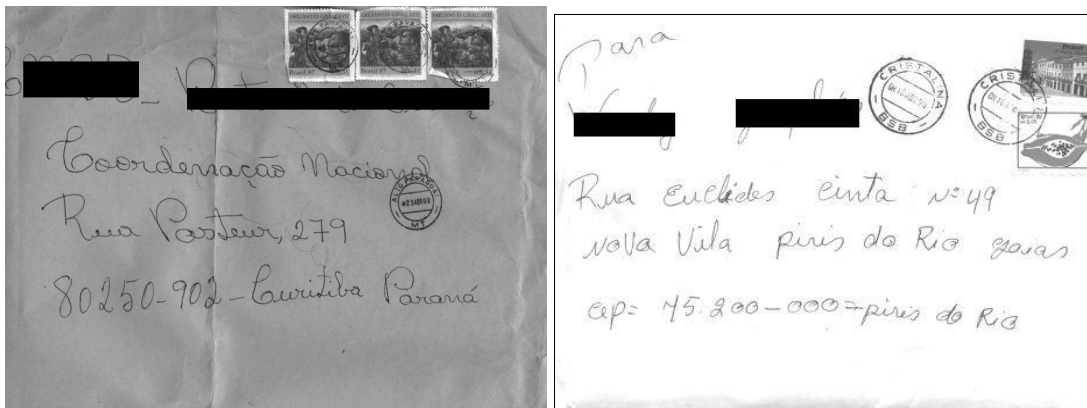 EMILIANO DI CAVALCANTI EMILIANO DI CAVALCANTI EMILIANO DI CAVALCANTI
Brasil 97
Coordenação Nacional
Rua Pasteur, 279
80250-902 - Curitiba Paraná
ALTO PARAGUAI
MT
Para
CRISTALINA
BSB
CRISTALINA
BSB
Rua Euclides Cinta nº 49
Nova Vila piris do Rio goias
cep= 75.200-000=piris do Rio